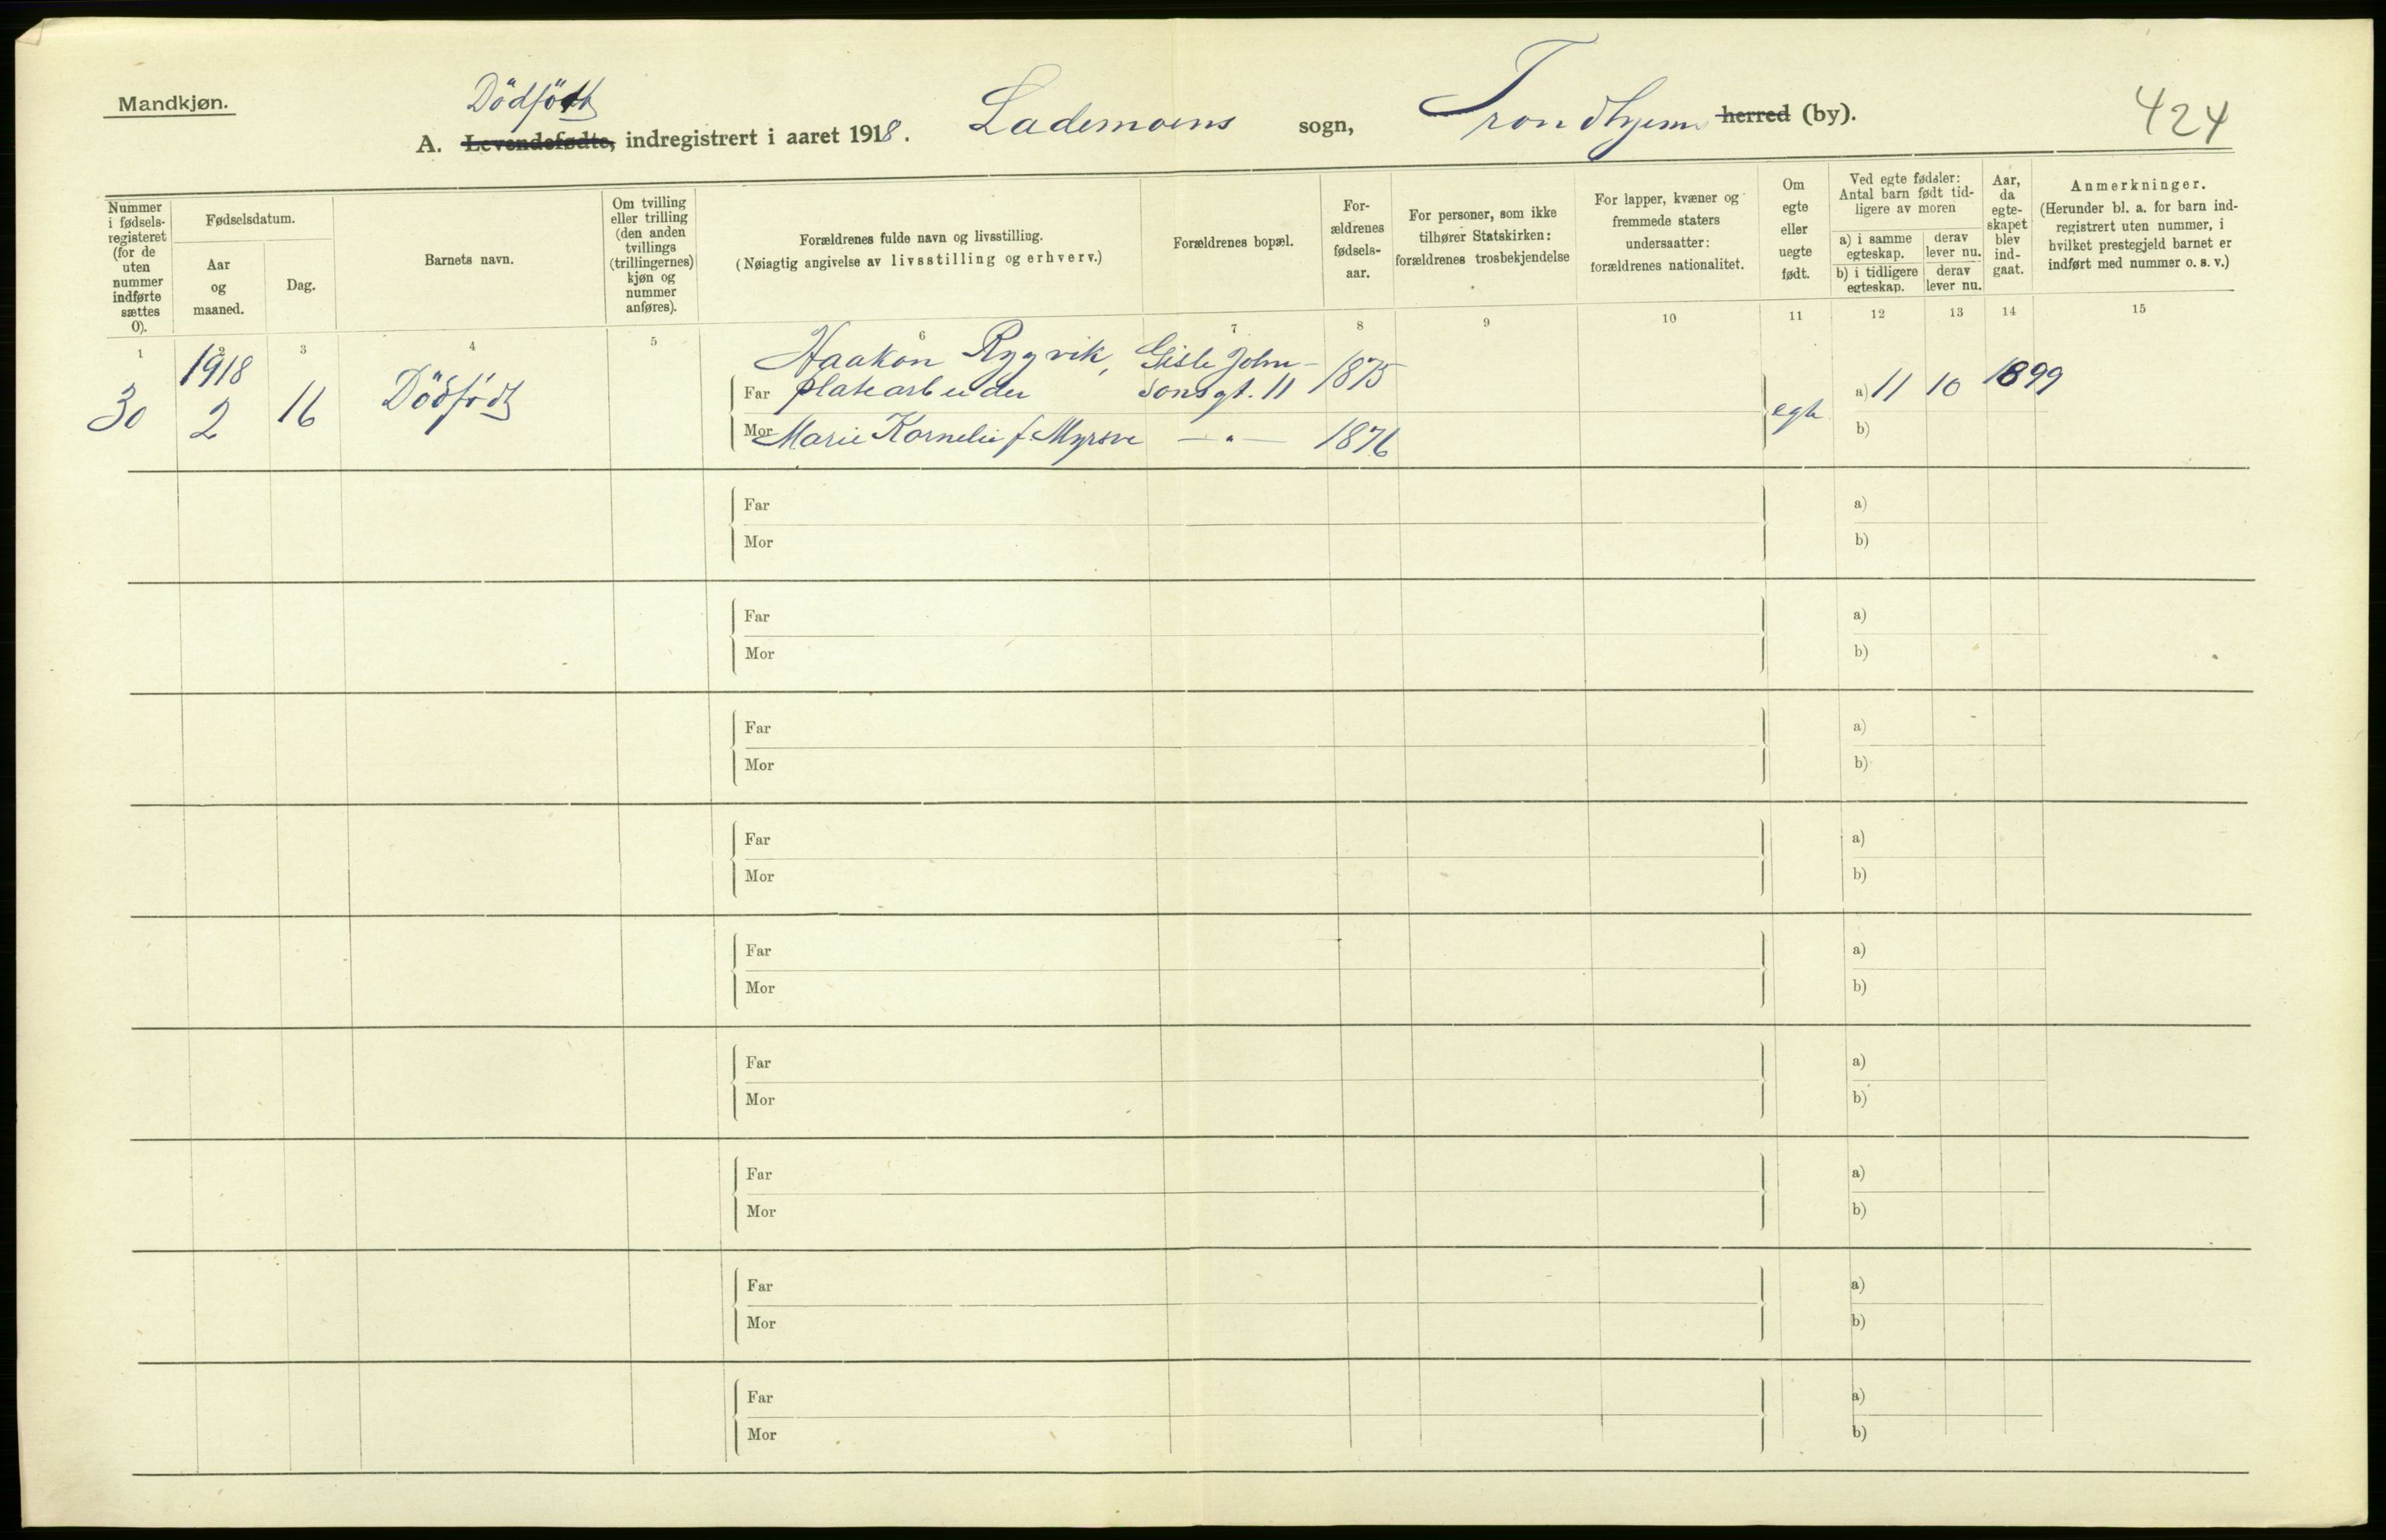 Mandkjøn.
Dödfödt
A. Levendefødte, indregistrert i aaret 1918. Lademoens sogn, Trondhjem herred (by).
424
Nummer i fødsels-registeret (for de uten nummer indførte sættes 0).
Fødselsdatum.
Aar og maaned.
Dag.
Barnets navn.
Om tvilling eller trilling (den anden tvillings (trillingernes) kjøn og nummer anføres).
Forældrenes fulde navn og livsstilling.
(Nøiagtig angivelse av livsstilling og erhverv.)
Forældrenes bopæl.
For-ældrenes fødsels-aar.
For personer, som ikke tilhører Statskirken: forældrenes trosbekjendelse
For lapper, kvæner og fremmede staters undersaatter: forældrenes nationalitet.
Om egte eller uegte født.
Ved egte fødsler: Antal barn født tid-ligere av moren
a) i samme egteskap.
derav lever nu.
b) i tidligere egteskap.
derav lever nu.
Aar, da egte-skapet blev ind-gaat.
Anmerkninger.
(Herunder bl. a. for barn ind-registrert uten nummer, i hvilket prestegjeld barnet er indført med nummer o. s. v.)
1 2 3 4 5 6 7 8 9 10 11 12 13 14 15
1918 Haakon Rygvik, Gisle John-
30 2 16 Dödfödt Far platearbeider sons gt. 11 1875 egte a) 11 10 1899
Mor Marie Kornelie f. Myrsve —"— 1876 b)
Far a)
Mor b)
Far a)
Mor b)
Far a)
Mor b)
Far a)
Mor b)
Far a)
Mor b)
Far a)
Mor b)
Far a)
Mor b)
Far a)
Mor b)
Far a)
Mor b)